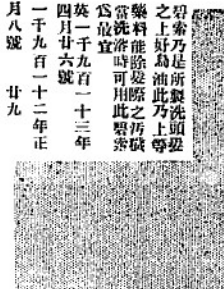 碧素乃是所製洗頭髮
之上好油此乃上等
藥料能除髮際之汚
當洗浴時可用此碧素
爲最宜
英一千九百一十三年
四月廿六號
一千九百一十二年正
月八號 廿九